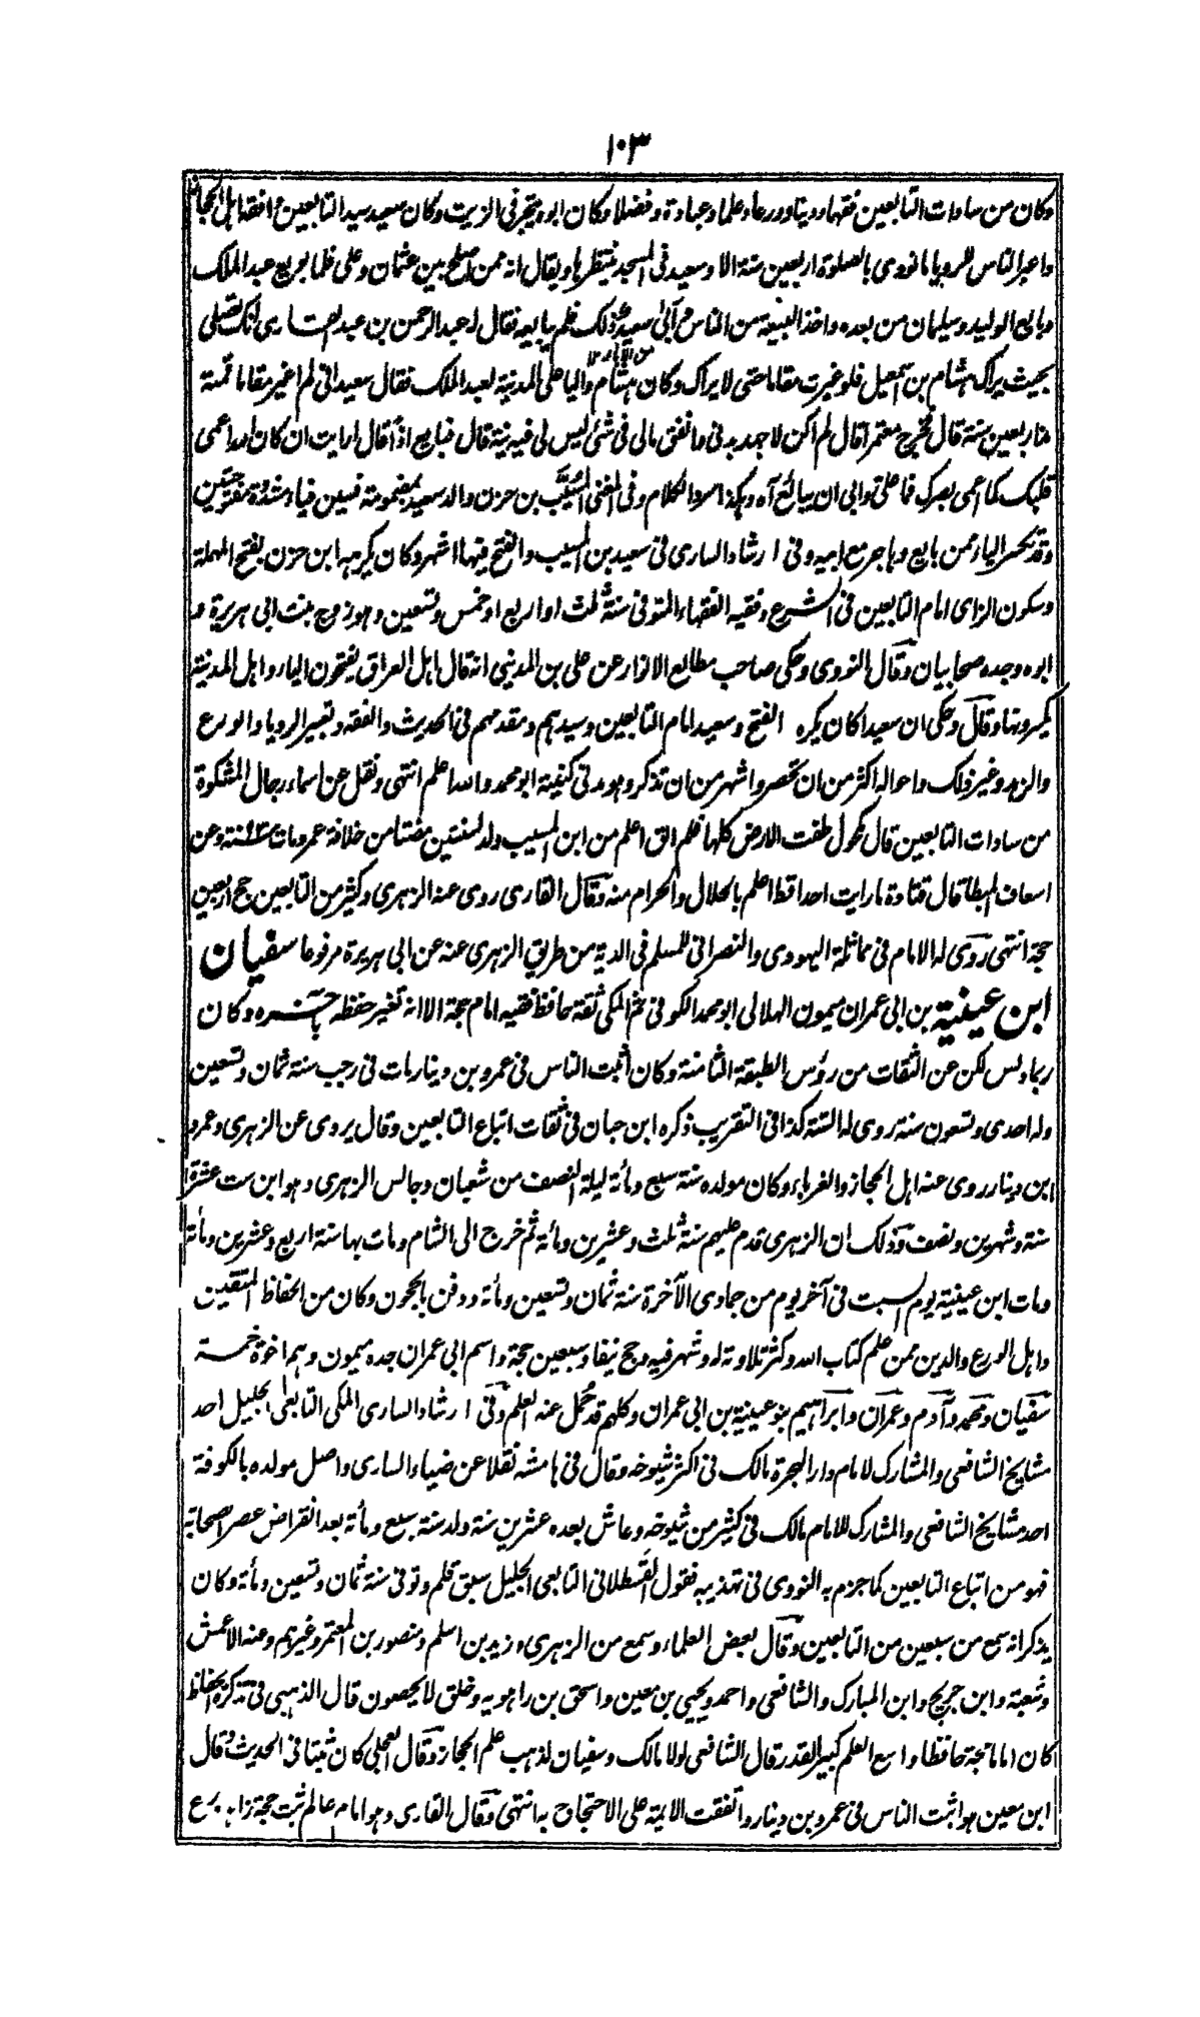 ١٠٣
وكان من سادات التابعين فقها ودينا وورعا وعلما وعبادة وفضلا وكان ابوه يتجر فى الزيت وكان سعيد سيد التابعين وافقه اهل الحجاز
واعبر الناس للرويا ما نودى بالصلوة اربعين سنة الا وسعيد فى المسجد ينتظرها ويقال انه ممن اصلح بين عثمان وعلى فلما بويع عبد الملك
وبايع الوليد وسليمان من بعده واخذ البيعة من الناس ابى سعيد ذلك فلم يبايعه فقال له عبد الرحمن بن عبد القارى انك تصلى
بحيث يراك هشام بن اسمعيل فلو غيرت مقامك حتى لا يراك وكان هشام واليا على المدينة لعبد الملك فقال سعيد انى لم اغير مقاما قمته
منذ اربعين سنة قال فخرج معتمرا قال لم اكن لاجهد بدنى وانفق مالى فى شئ ليس لى فيه نية قال فبايع اذا قال ارايت ان كان الله اعمى
قلبك كما اعمى بصرك فما على وابى ان يبايع آه وهكذا سرد الكلام وفى المغنى المسيب بن حزن والد سعيد بمضمومة فسين فياء مشددة مفتوحتين
وقد يكسر الياء ممن بايع وهاجر مع ابيه وفى ارشاد السارى فى سعيد بن المسيب والفتح فيها اشهر وكان يكرهه ابن حزن بفتح المهملة
وسكون الزاى امام التابعين فى الشرع وفقيه الفقهاء المتوفى سنة ثلث او اربع او خمس وتسعين وهو زوج بنت ابى هريرة و
ابوه وجده صحابيان وقال النووى وحكى صاحب مطالع الانوار عن على بن المدينى انه قال اهل العراق يفتحون الياء واهل المدينة
يكسرونها وقال وحكى ان سعيدا كان يكره الفتح وسعيد امام التابعين وسيدهم ومقدمهم فى الحديث والفقه وتعبير الرويا والورع
والزهد وغير ذلك واحواله اكثر من ان تحصر واشهر من ان تذكر وهو مدنى كنيته ابو محمد والله اعلم انتهى ونقل عن اسماء رجال المشكوة
من سادات التابعين قال مكحول طفت الارض كلها فلم الق اعلم من ابن المسيب ولد لسنتين مضتا من خلافة عمر ومات سنة وعن
اسعاف المبطا قال قتادة ما رايت احدا قط اعلم بالحلال والحرام منه وقال القارى روى عنه الزهرى وكثير من التابعين حج اربعين
حجة انتهى روى له الامام فى مماثلة اليهودى والنصرانى للمسلم فى الدية من طريق الزهرى عنه عن ابى هريرة مرفوعا سفيان
ابن عيينة بن ابى عمران ميمون الهلالى ابو محمد الكوفى ثم المكى ثقة حافظ فقيه امام حجة الا انه تغير حفظه باخره وكان
ربما دلس لكن عن الثقات من رؤس الطبقة الثامنة وكان اثبت الناس فى عمرو بن دينار مات فى رجب سنة ثمان وتسعين
وله احدى وتسعون سنة روى له الستة كذا فى التقريب ذكره ابن حبان فى ثقات اتباع التابعين وقال يروى عن الزهرى وعمرو
ابن دينار روى عنه اهل الحجاز والغرباء وكان مولده سنة سبع ومأة ليلة النصف من شعبان وجالس الزهرى وهو ابن ست عشرة
سنة وشهرين ونصف وذلك ان الزهرى قدم عليهم سنة ثلث وعشرين ومأة ثم خرج الى الشام ومات بها سنة اربع وعشرين ومأة
ومات ابن عيينة يوم السبت فى آخر يوم من جمادى الآخرة سنة ثمان وتسعين ومأة ودفن بالحجون وكان من الحفاظ المتقنين
واهل الورع والدين ممن علم كتاب الله وكثر تلاوته له وشهر فيه وحج نيفا وسبعين حجة واسم ابى عمران جده ميمون وهم اخوة خمسة
سفيان ومحمد وآدم وعمران وابراهيم بنو عيينة بن ابى عمران وكلهم قد حمل عنه العلم وفى ارشاد السارى المكى التابعى الجليل احد
مشايخ الشافعى والمشارك لامام دار الهجرة مالك فى اكثر شيوخه وقال فى هامشه نقلا عن ضياء السارى واصل مولده بالكوفة
احد مشايخ الشافعى والمشارك للامام مالك فى كثير من شيوخه وعاش بعده عشرين سنة ولد سنة سبع ومأة بعد انقراض عصر الصحابة
فهو من اتباع التابعين كما جزم به النووى فى تهذيبه فقول القسطلانى التابعى الجليل سبق قلم وتوفى سنة ثمان وتسعين ومأة وكان
يذكر انه سمع من سبعين من التابعين وقال بعض العلماء وسمع من الزهرى وزيد بن اسلم ومنصور بن المعتمر وغيرهم وعنه الاعمش
وشعبة وابن جريج وابن المبارك والشافعى واحمد ويحيى بن معين واسحق بن راهويه وخلق لا يحصون قال الذهبى فى تذكرة الحفاظ
كان اماما حجة حافظا واسع العلم كبير القدر قال الشافعى لولا مالك وسفيان لذهب علم الحجاز وقال العجلى كان ثبتا فى الحديث وقال
ابن معين هو اثبت الناس فى عمرو بن دينار واتفقت الائمة على الاحتجاج به انتهى وقال القارى وهو امام عالم ثبت حجة زاهد ورع